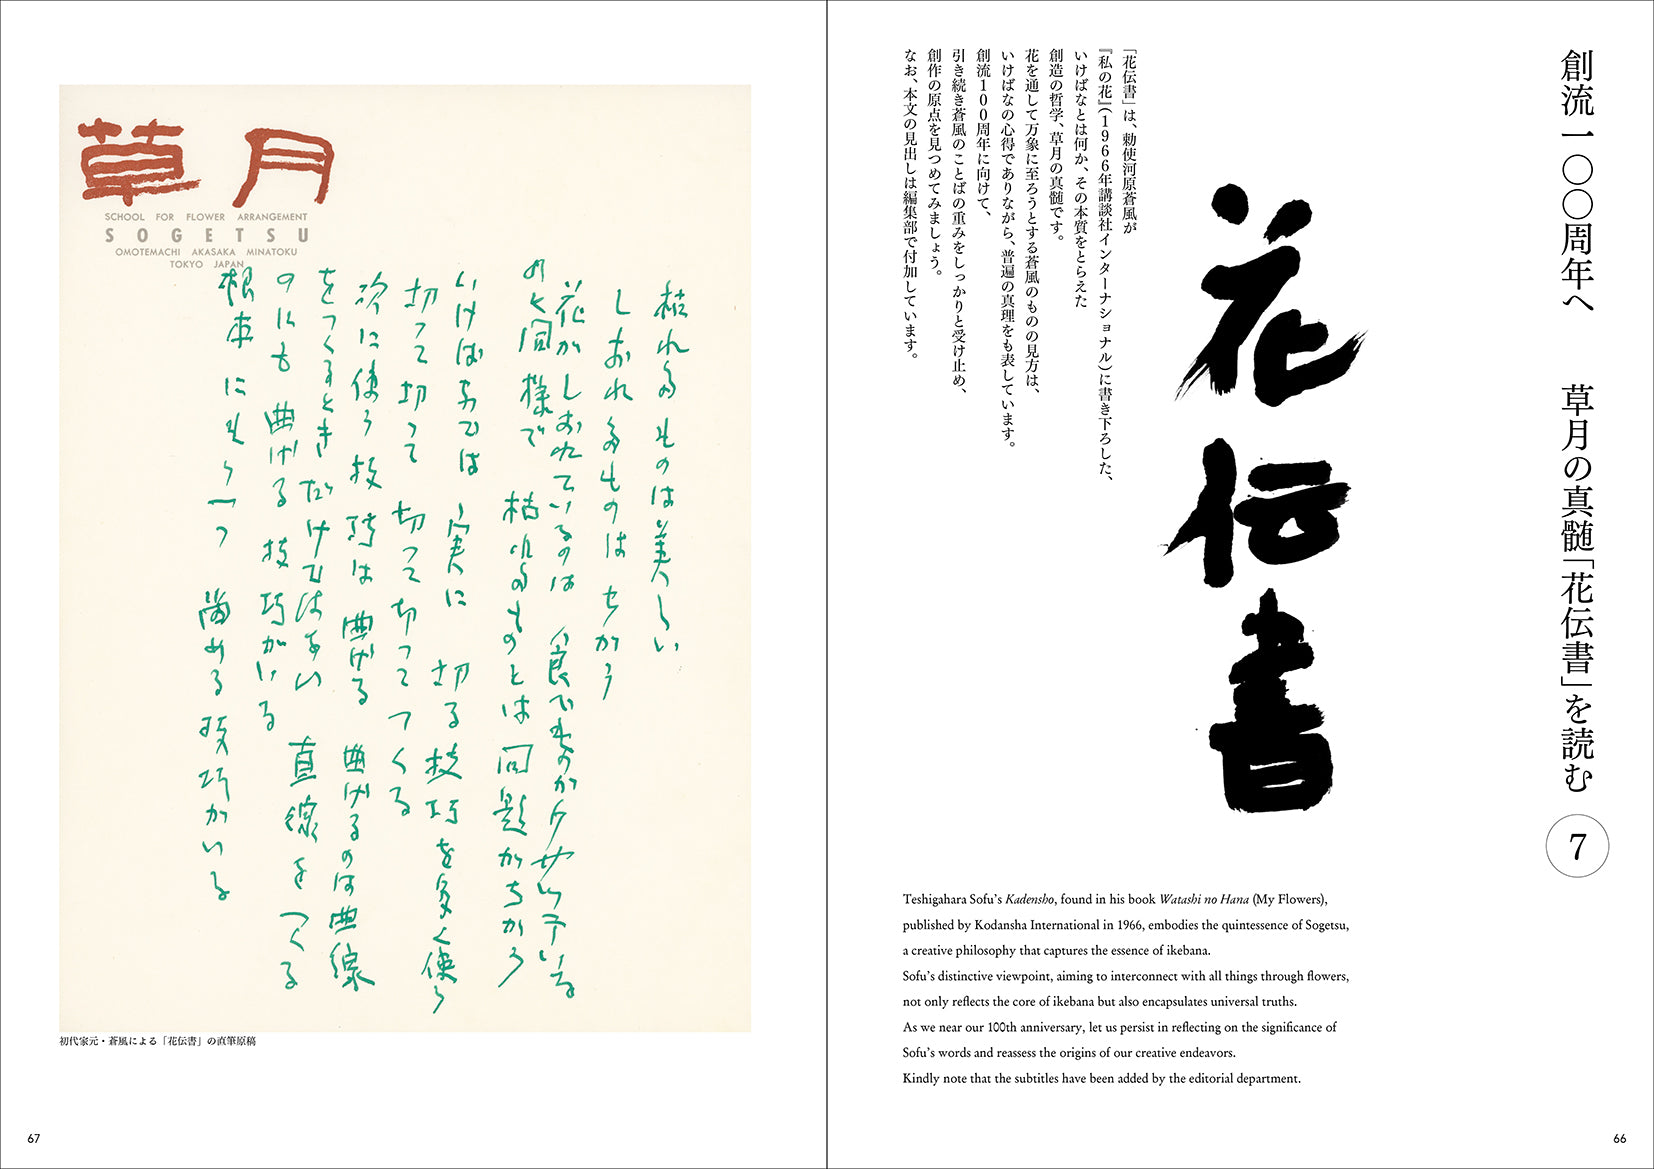 創流一〇〇周年へ　草月の真髄「花伝書」を読む 7
花伝書
「花伝書」は、勅使河原蒼風が
『私の花』(1966年講談社インターナショナル)に書き下ろした、
いけばなとは何か、その本質をとらえた
創造の哲学、草月の真髄です。
花を通して万象に至ろうとする蒼風のものの見方は、
いけばなの心得でありながら、普遍の真理をも表しています。
創流100周年に向けて、
引き続き蒼風のことばの重みをしっかりと受け止め、
創作の原点を見つめてみましょう。
なお、本文の見出しは編集部で付加しています。
Teshigahara Sofu's Kadensho, found in his book Watashi no Hana (My Flowers),
published by Kodansha International in 1966, embodies the quintessence of Sogetsu,
a creative philosophy that captures the essence of ikebana.
Sofu's distinctive viewpoint, aiming to interconnect with all things through flowers,
not only reflects the core of ikebana but also encapsulates universal truths.
As we near our 100th anniversary, let us persist in reflecting on the significance of
Sofu's words and reassess the origins of our creative endeavors.
Kindly note that the subtitles have been added by the editorial department.
66
草月
SCHOOL FOR FLOWER ARRANGEMENT
SOGETSU
OMOTEMACHI AKASAKA MINATOKU
TOKYO JAPAN
枯れたものは美しい
しおれたものはちがう
花がしおれているのは 食べものがクサッテいる
のと同様で 枯れたものとは問題がちがう
いけばなでは 実に 切る技巧を多く使う
切って切って 切って切ってつくる
次に使う技巧は 曲げる 曲げるのは曲線
をつくるときだけではない 直線をつくる
のにも 曲げる技巧がいる
根本にもう一つ 留める技巧がいる
初代家元・蒼風による「花伝書」の直筆原稿
67